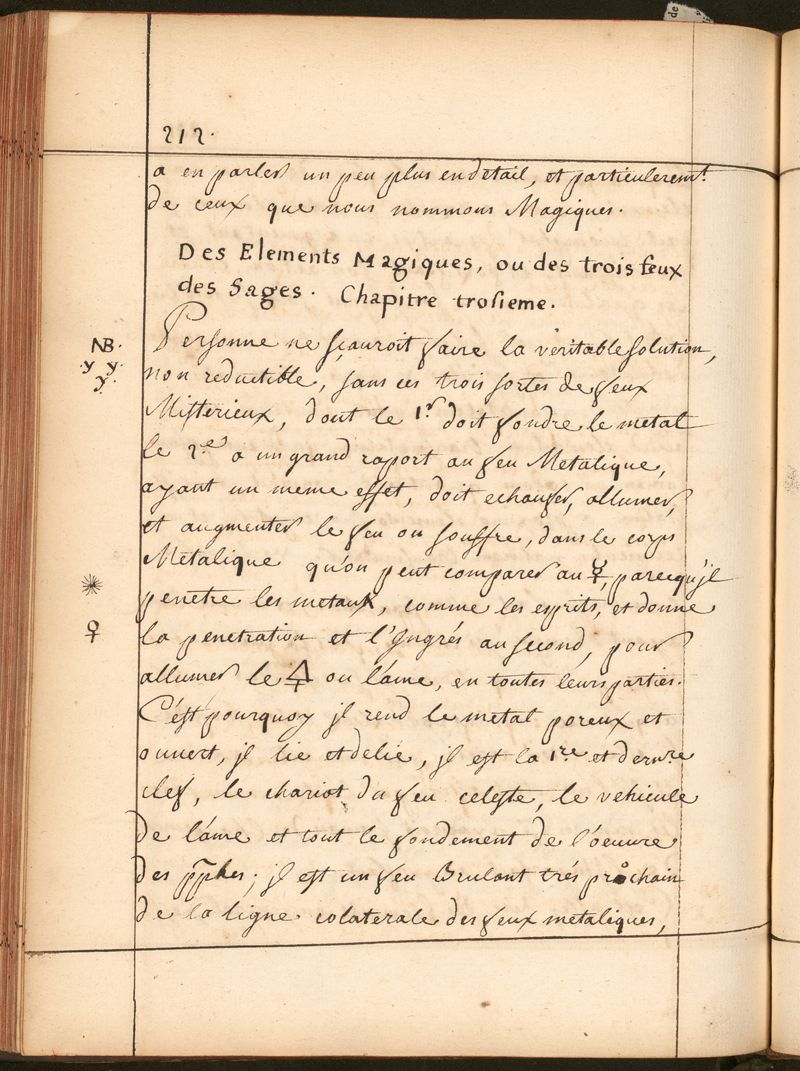 de
212.
a en parler un peu plus en detail, et particuleremt.
de ceux que nous nommons Magiques.
Des Elements Magiques, ou des trois feux
des Sages. Chapitre troisieme.
NB.
.y y.
y.
Personne ne sçauroit faire la veritable solution,
non reductible, sans ces trois sortes de feux
Misterieux, dont le 1r doit fondre le metal
le 2.e a un grand raport au feu Metalique,
ayant un meme effet, doit echaufer, allumer,
et augmenter le feu ou souffre, dans le corps
Metalique qu'on peut comparer au ☿, parcequ'jl
penetre les metaux, comme les esprits, et donne
♀ la penetration et l'Jngrés au second, pour
allumer le 🜍 ou l'ame, en toutes leurs parties.
C'est pourquoy jl rend le metal poreux et
ouvert, jl lie et delie, jl est la 1.re et dern.re
clef, le chariot du feu celeste, le vehicule
de l'ame et tout le fondement de l'oeuvre
des pphes; jl est un feu Brulant trés prochain
de la ligne colaterale des feux metaliques,